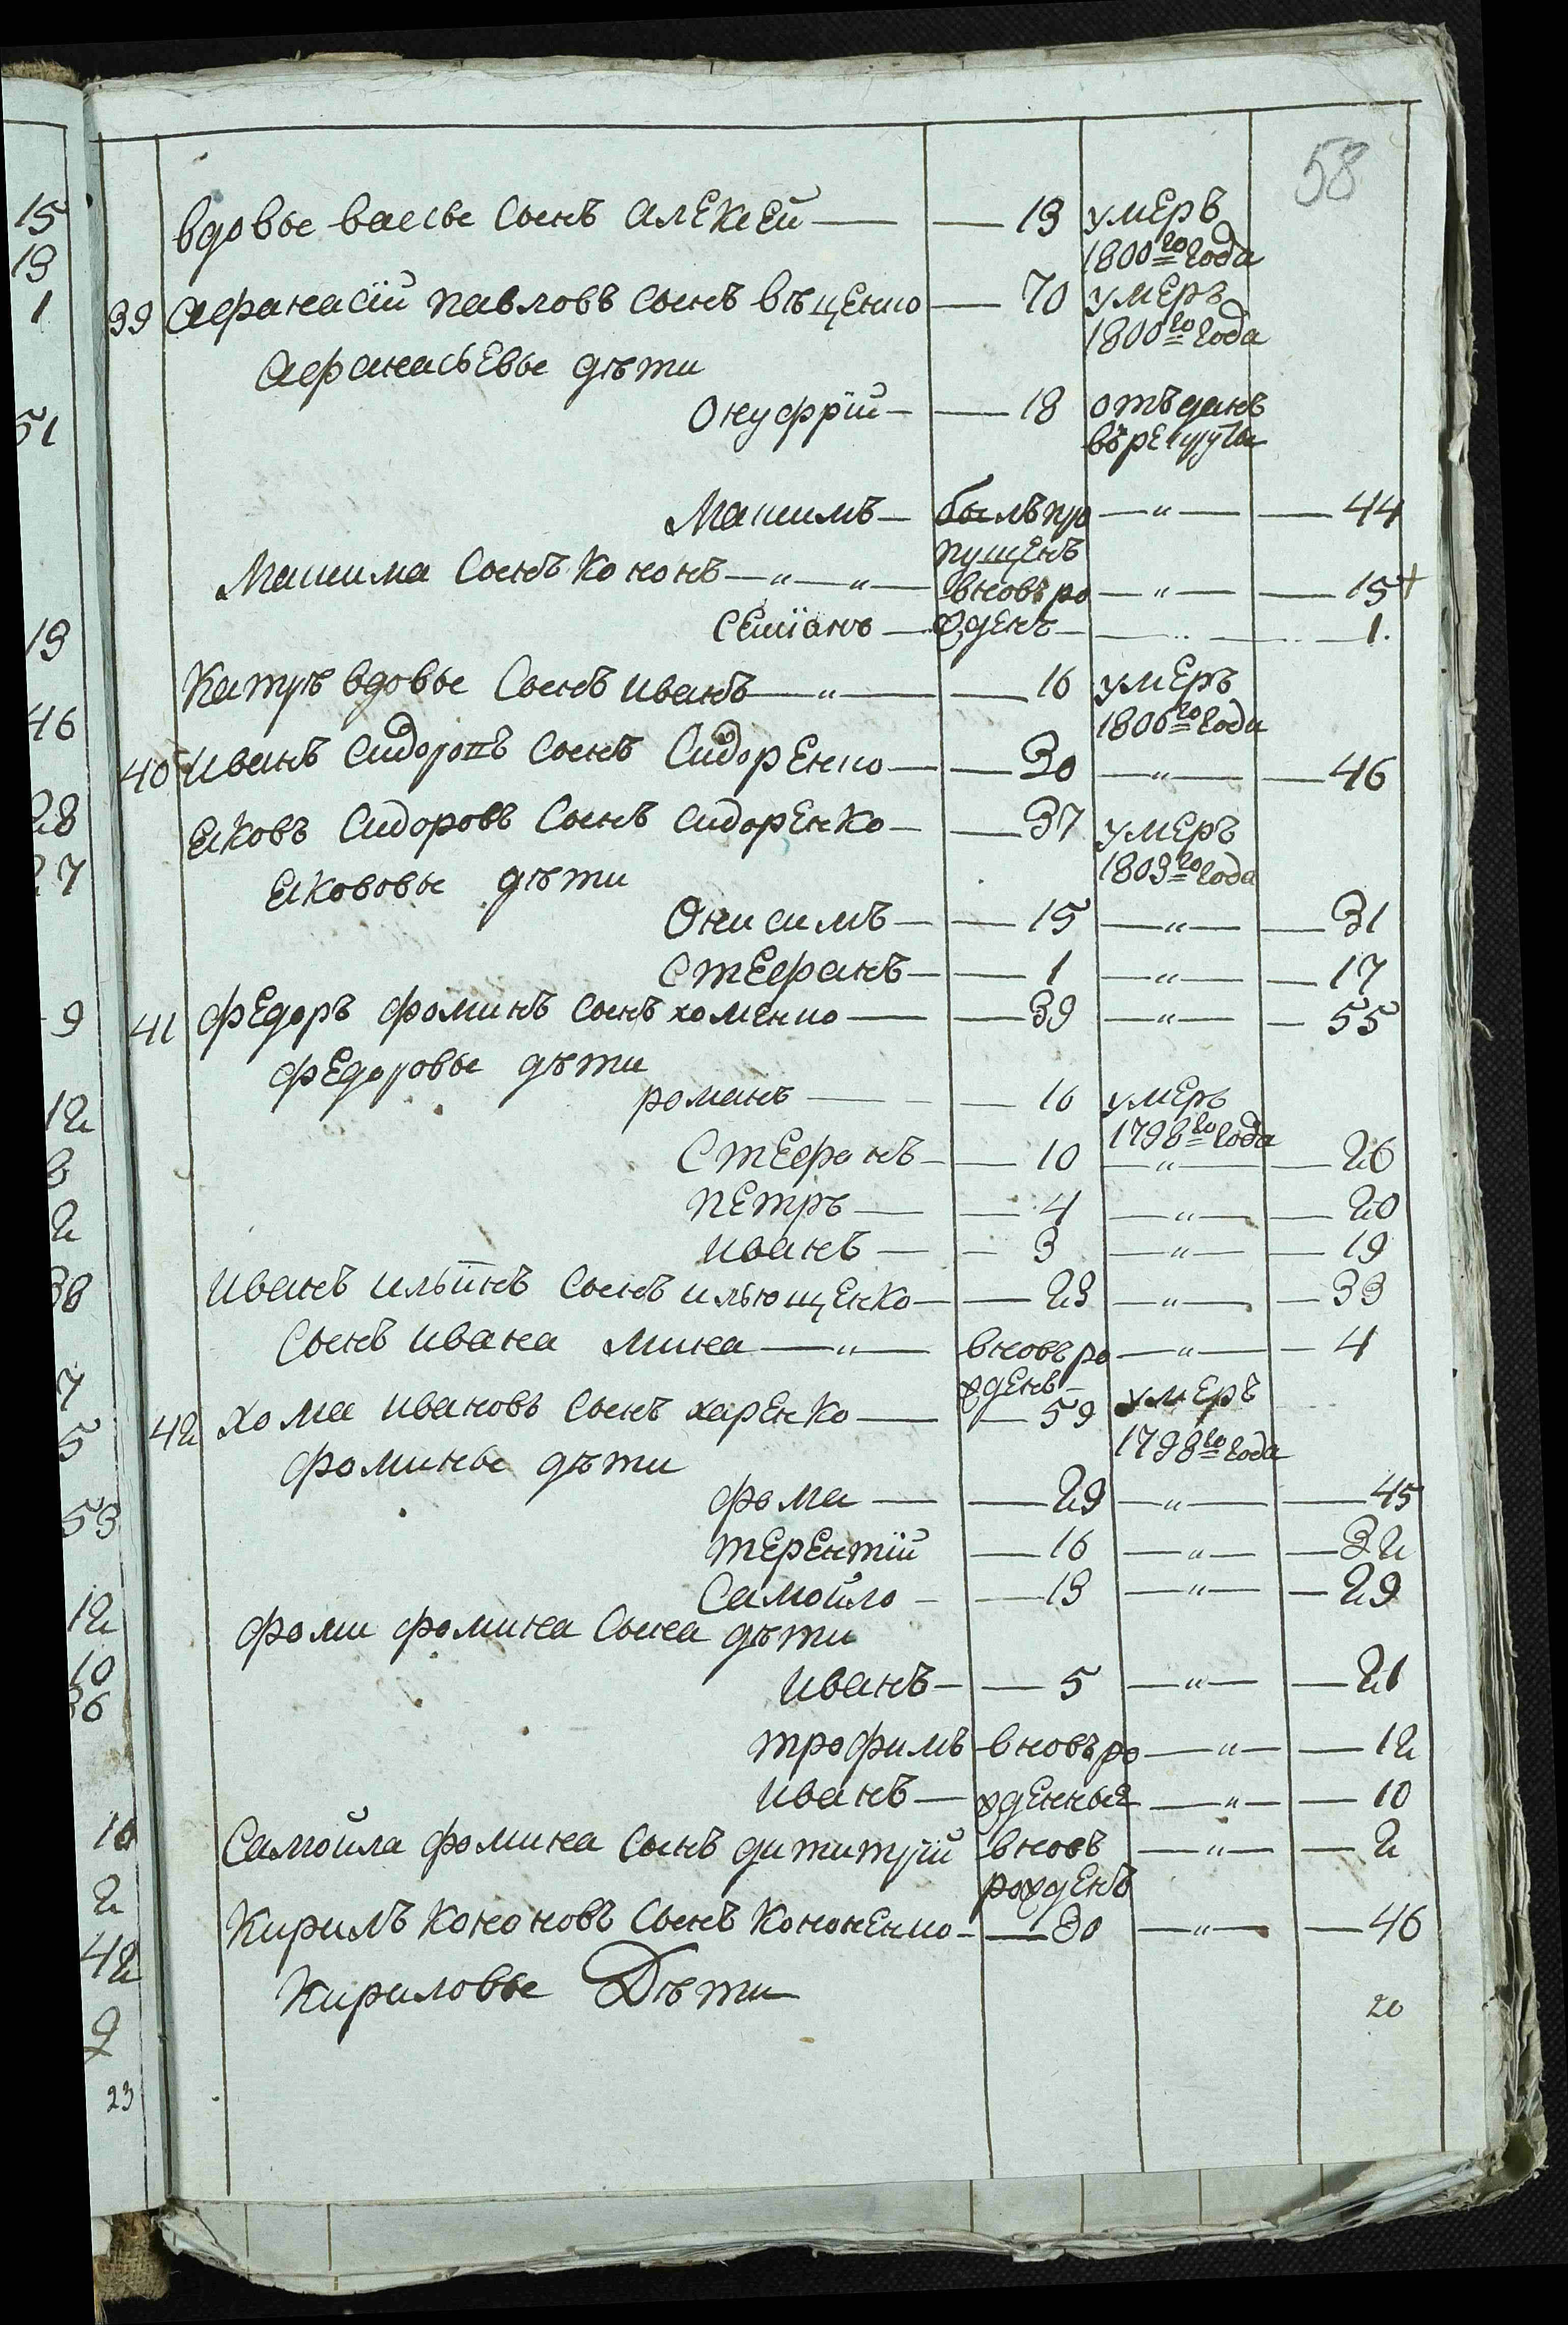 58
вдовы васьы сынъ алексей — — 13 умеръ
1800го года
39 афанасій павловъ сынъ въценко — 70 умеръ
1800го года
афанасьевы дѣти
Онуфрій — — 18 отъданъ
въ рекруты
Максимъ — былъ про — " — — 44
пущенъ
Максима сынъ Кононъ — " — " — вновъ ро — " — — 15 +
семіонъ — жденъ — — " — — 1.
Катрѣ вдовы сынъ иванъ — " — — 16 умеръ
1806го года
40 иванъ сидоровъ сынъ сидоренко — — 30 — " — — 46
яковъ сидоровъ сынъ сидоренко — — 37 умеръ
1803го года
якововы дѣти
Онисимъ — — 15 — " — — 31
стефанъ — — 1 — " — — 17
41 федоръ фоминъ сынъ хоменко — — 39 — " — — 55
федоровы дѣти
романъ — — 16 умеръ
1798го года
стефанъ — — 10 — " — — 26
петръ — — 4 — " — — 20
иванъ — — 3 — " — — 19
иванъ ильинъ сынъ ильющенко — — 23 — " — — 33
сынъ ивана мина — " — вновъ ро — " — — 4
жденъ —
42 хома ивановъ сынъ харенко — — 59 умеръ
1798го года
фомины дѣти
фома — — 29 — " — — 45
терентій — 16 — " — — 32
самойло — — 13 — " — — 29
фоми фомина сына дѣти
иванъ — — 5 — " — — 21
трофимъ вновъ ро — " — — 12
иванъ — жденные — " — — 10
самойла фомина сынъ дитмитрій вновъ — " — — 2
рожденъ
Кирилъ Кононовъ сынъ Кононенко — — 30 — " — — 46
Кириловы Дѣти
20
15
13
1
51
13
46
28
27
9
12
3
2
38
7
5
53
12
10
36
10
2
42
2
23